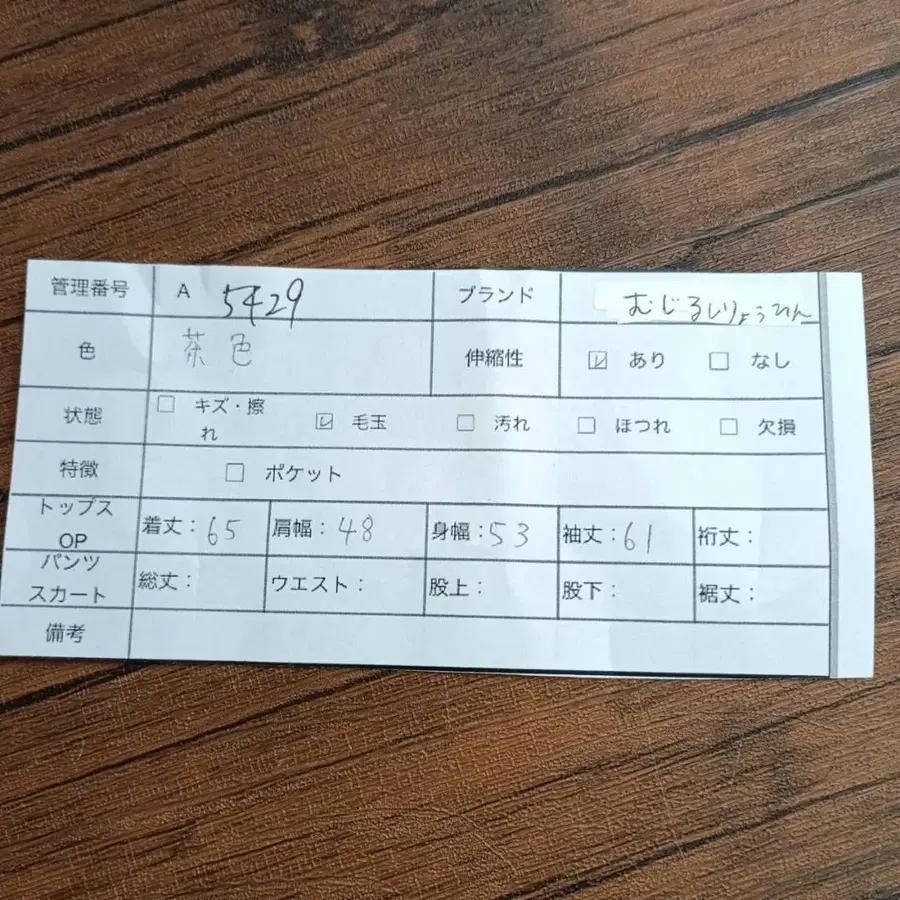 管理番号 A 5429 ブランド むじるしりょうひん
色 茶色 伸縮性 ☑ あり ☐ なし
状態 ☐ キズ・擦れ ☑ 毛玉 ☐ 汚れ ☐ ほつれ ☐ 欠損
特徴 ☐ ポケット
トップス OP 着丈：65 肩幅：48 身幅：53 袖丈：61 裄丈：
パンツ スカート 総丈： ウエスト： 股上： 股下： 裾丈：
備考